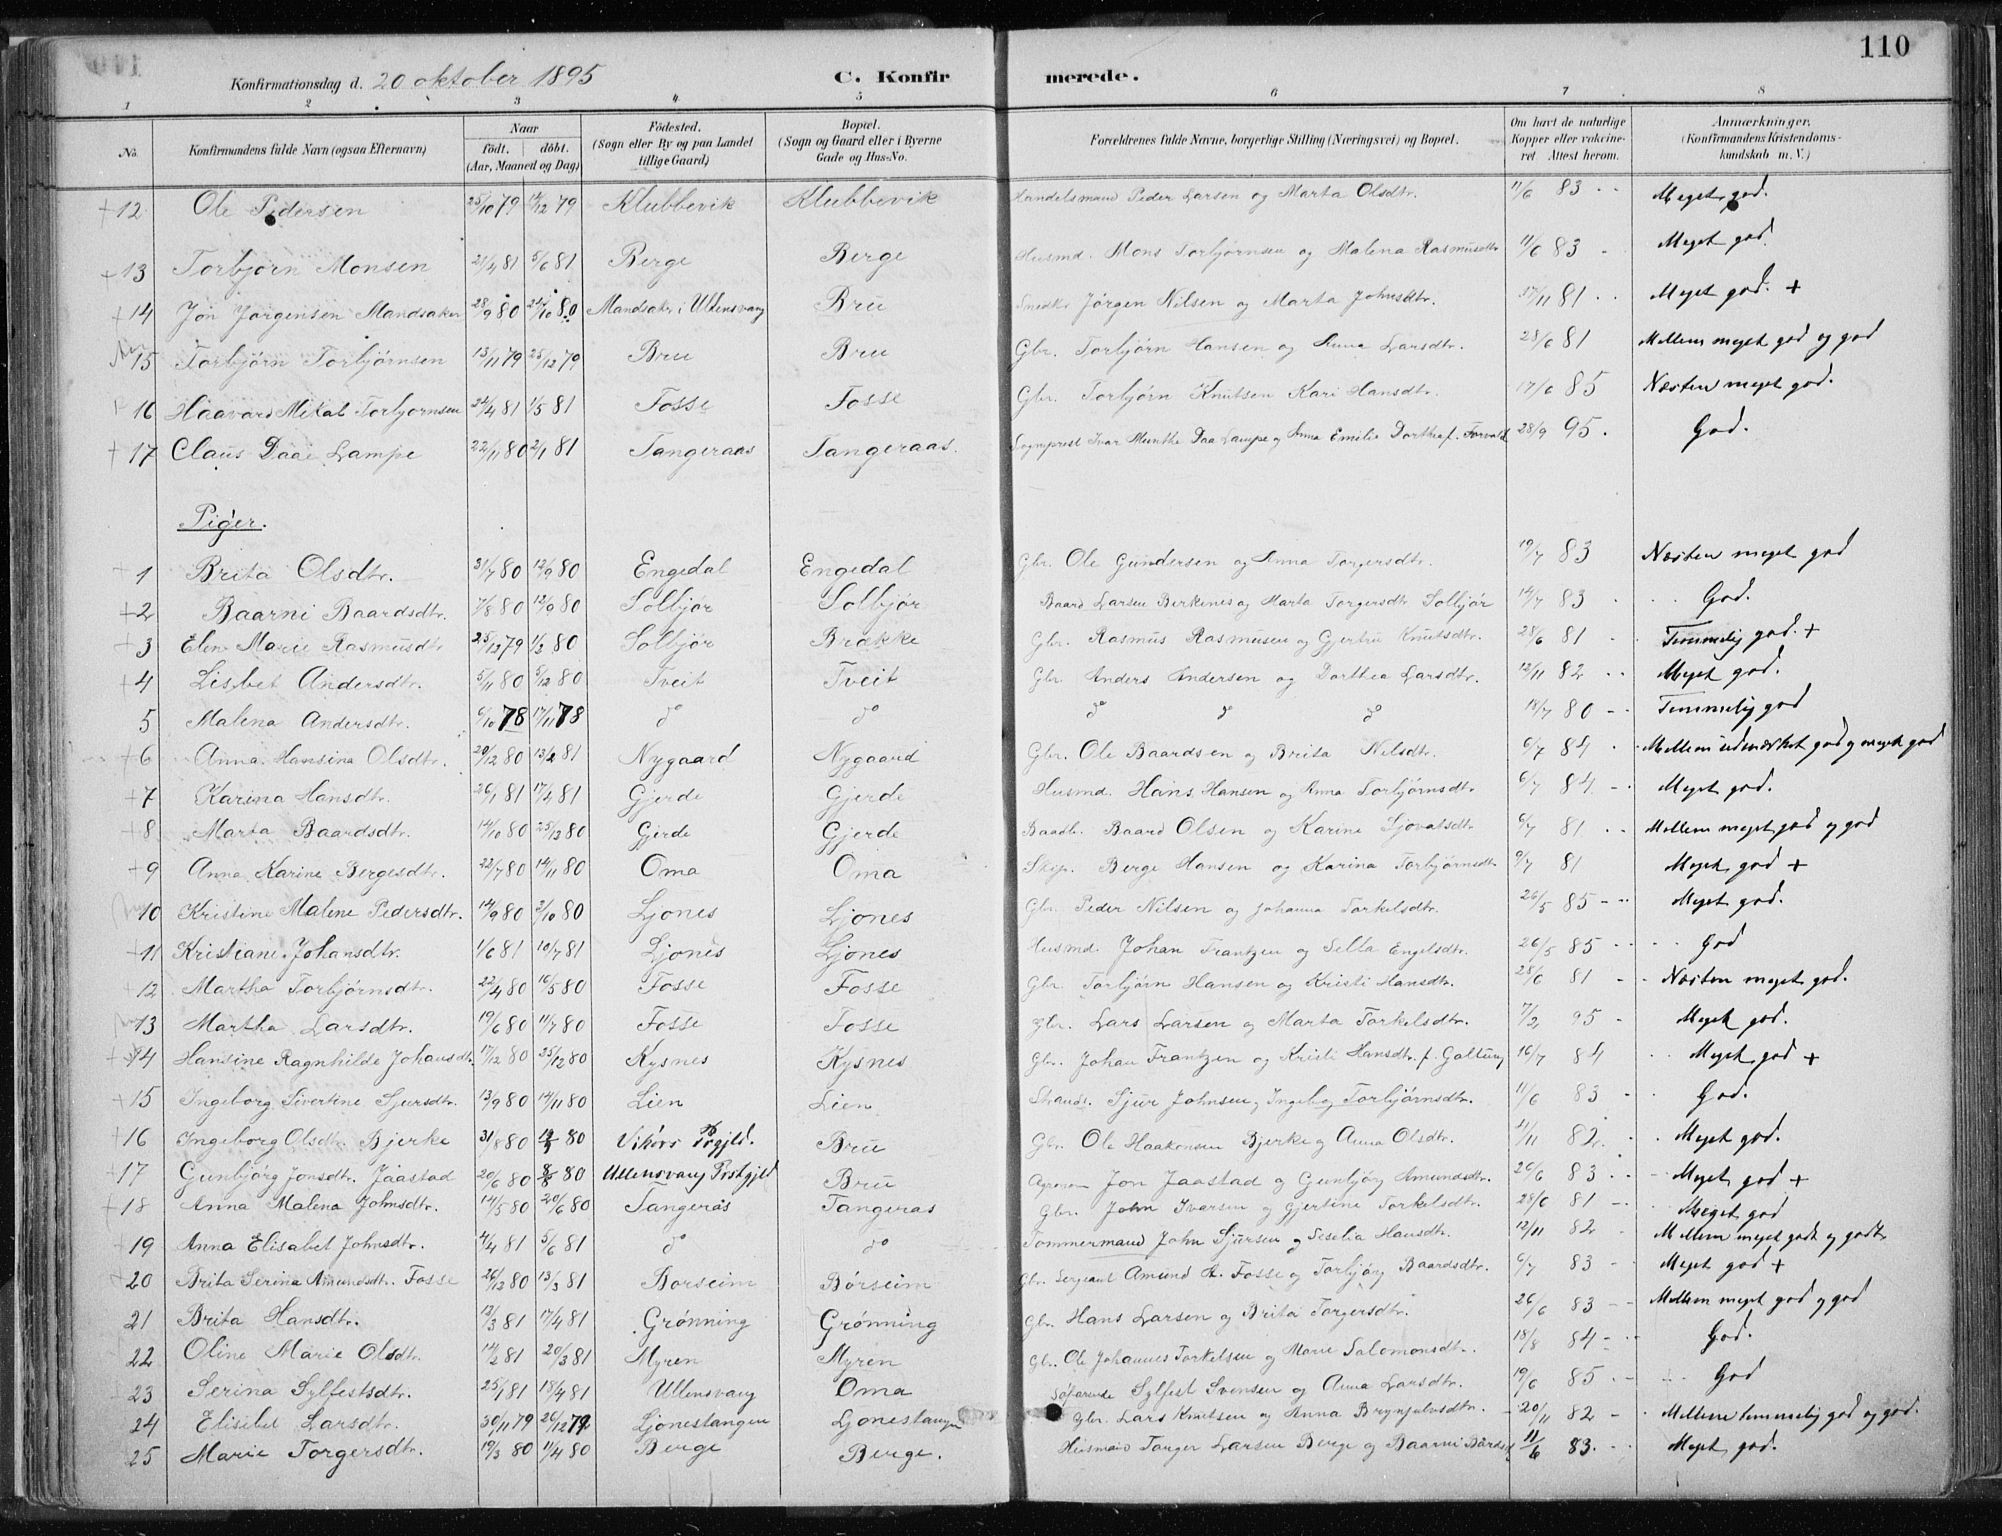 110
Konfirmationsdag d. 20 oktober 1895 C. Konfirmerede.
1 2 3 4 5 6 7 8
No. Konfirmandens fulde Navn (ogsaa Efternavn) Naar födt. döbt. (Aar, Maaned og Dag) Födested. (Sogn eller By og paa Landet tillige Gaard) Bopæl. (Sogn og Gaard eller i Byerne Gade og Hus-No. Forældrenes fulde Navne, borgerlige Stilling (Næringsvei) og Bopæl. Om havt de naturlige Kopper eller vakcineret. Attest herom. Anmærkninger. (Konfirmandens Kristendomskundskab m. V.)
+ 12 Ole Pedersen 25/10 79 14/12 79 Klubbevik Klubbevik Handelsmand Peder Larsen og Marta Olsdtr. 11/6 83 Meget god.
+ 13 Torbjørn Monsen 21/4 81 5/6 81 Berge Berge Husmd. Mons Torbjørnsen og Malena Rasmusdtr 11/6 83 Meget god.
+ 14 Jon Jørgensen Mandsaker 28/9 80 24/10 80 Mandsaker i Ullensvang Bru Smedkr Jørgen Nilsen og Marta Johnsdtr. 17/11 81 Meget god. +
15 Torbjørn Torbjørnsen 13/11 79 25/12 79 Bru Bru Gbr. Torbjørn Hansen og Anna Larsdtr. 28/6 81 Mellem meget god og god
16 Haavard Mikal Torbjørnsen 21/4 81 1/5 81 Fosse Fosse Gbr. Torbjørn Knutsen Kari Hansdtr. 17/6 85 Næsten meget god.
+ 17 Claus Daae Lampe 22/11 80 2/1 81 Tangeraas Tangeraas. Sogneprest Ivar Munthe Daa Lampe og Anna Emilie Dorthea f. Forvald 28/9 95. God.
Piger.
1 Brita Olsdtr. 31/7 80 12/9 80 Engedal Engedal Gbr. Ole Gundersen og Anna Torgersdtr. 19/7 83 Næsten meget god
+ 2 Baarni Baardsdtr. 7/8 80 12/9 80 Solbjør Solbjør Baard Larsen Berkenes og Marta Torgersdtr Solbjør 14/7 83 God.
+ 3 Elen Marie Rasmusdtr 25/12 79 1/2 80 Solbjør Brække Gbr. Rasmus Rasmusen og Gjertru Knutsdtr. 28/6 81 Temmelig god. +
+ 4 Lisbet Andersdtr. 5/11 80 5/12 80 Tveit Tveit Gbr Anders Andersen og Dorthea Larsdtr. 12/11 82 Meget god.
5 Malena Andersdtr. 6/10 78 17/11 78 do do do do do 18/7 80 Temmelig god
+ 6 Anna Hansina Olsdtr. 20/12 80 13/2 81 Nygaard Nygaard Gbr. Ole Baardsen og Brita Nilsdtr. 6/7 84 Mellem udmærket god og meget god
+ 7 Karina Hansdtr. 26/1 81 17/4 81 Gjerde Gjerde Husmd. Hans Hansen og Anna Torbjørnsdtr 6/7 84 Meget god.
+ 8 Marta Baardsdtr. 14/10 80 25/12 80 Gjerde Gjerde Baard Olsen og Karine Sjovatsdtr 6/7 81 Mellem meget god og god
+ 9 Anna Karine Bergesdtr. 22/7 80 14/11 80 Oma Oma Skip. Berge Hansen og Karina Torbjørnsdtr 9/7 81 Meget god +
10 Kristine Malene Pedersdtr. 14/9 80 3/10 80 Ljones Ljones Gbr. Peder Nilsen og Johanna Torkelsdtr. 26/5 85 Meget god.
+ 11 Kristiane Johansdtr. 1/6 81 10/7 81 Ljones Ljones Husmd. Johan Frantzen og Sella Engelsdtr. 26/5 85 God
+ 12 Martha Torbjørnsdtr. 22/4 80 16/5 80 Fosse Fosse Gbr Torbjørn Hansen og Kristi Hansdtr. 28/6 81 Næsten meget god.
13 Martha Larsdtr. 19/6 80 11/7 80 Fosse Fosse Gbr. Lars Larsen og Marta Torkelsdtr. 7/2 95 Meget god.
+ 14 Hansine Ragnhilde Johansdtr 17/12 80 25/12 80 Kysnes Kysnes Gbr. Johan Frantzen og Kristi Hansdtr. f. Galtung 16/7 84 Meget god +
+ 15 Ingeborg Sivertine Sjursdtr. 13/9 80 14/11 80 Lien Lien Strands. Sjur Johnsen og Ingeborg Torbjørnsdtr. 11/6 83 God.
+ 16 Ingeborg Olsdtr. Bjerke 31/8 80 80 Vikørs Prgjld. Bru Gbr. Ole Haakonsen Bjerke og Anna Olsdtr. 11/11 82. Meget god.
+ 17 Gunbjørg Jonsdtr. Jaastad 20/6 80 8/8 80 Ullensvang Prstgjld Bru Jon Jaastad og Gunbjørg Amundsdtr. 26/6 83 Meget god +
+ 18 Anna Malena Johnsdtr. 14/5 80 20/6 80 Tangerås Tangeras Gbr. John Ivarsen og Gjertine Torkelsdtr. 28/6 81 Meget god
+ 19 Anna Elisabet Johnsdtr. 4/4 81 5/6 81 do do Tømmermand John Sjursen og Seselia Hansdtr. 12/11 82 Mellem meget godt og godt
20 Brita Serina Amundsdtr. Fosse 26/12 80 13/3 81 Børseim Børseim Gbr. Sergeant Amund H. Fosse og Torbjørg Baardsdtr. 6/7 83 Meget god +
21 Brita Hansdtr. 13/3 81 17/4 81 Grønning Grønning Gbr. Hans Larsen og Brita Torgersdtr. 26/6 83 Mellem meget god og god
22 Oline Marie Olsdtr. 14/2 81 20/3 81 Myren Myren Gbr. Ole Johannes Torkelsen og Marie Salomonsdtr. 18/8 84 God.
23 Serina Sylfestsdtr. 25/1 81 18/4 81 Ullensvang Oma Søfarende Sylfest Svensen og Anna Larsdtr. 19/6 85 God
24 Elisebet Larsdtr. 30/11 79 26/12 79 Ljonestangen Ljonestangen Gbr. Lars Knutsen og Anna Brynjulvsdtr. 20/11 82 Mellem temmelig god og god.
25 Marie Torgersdtr. 19/3 80 11/4 80 Berge Berge. Husmand Torger Larsen Berge og Baarni Bårdsd. 11/6 83. Meget god.